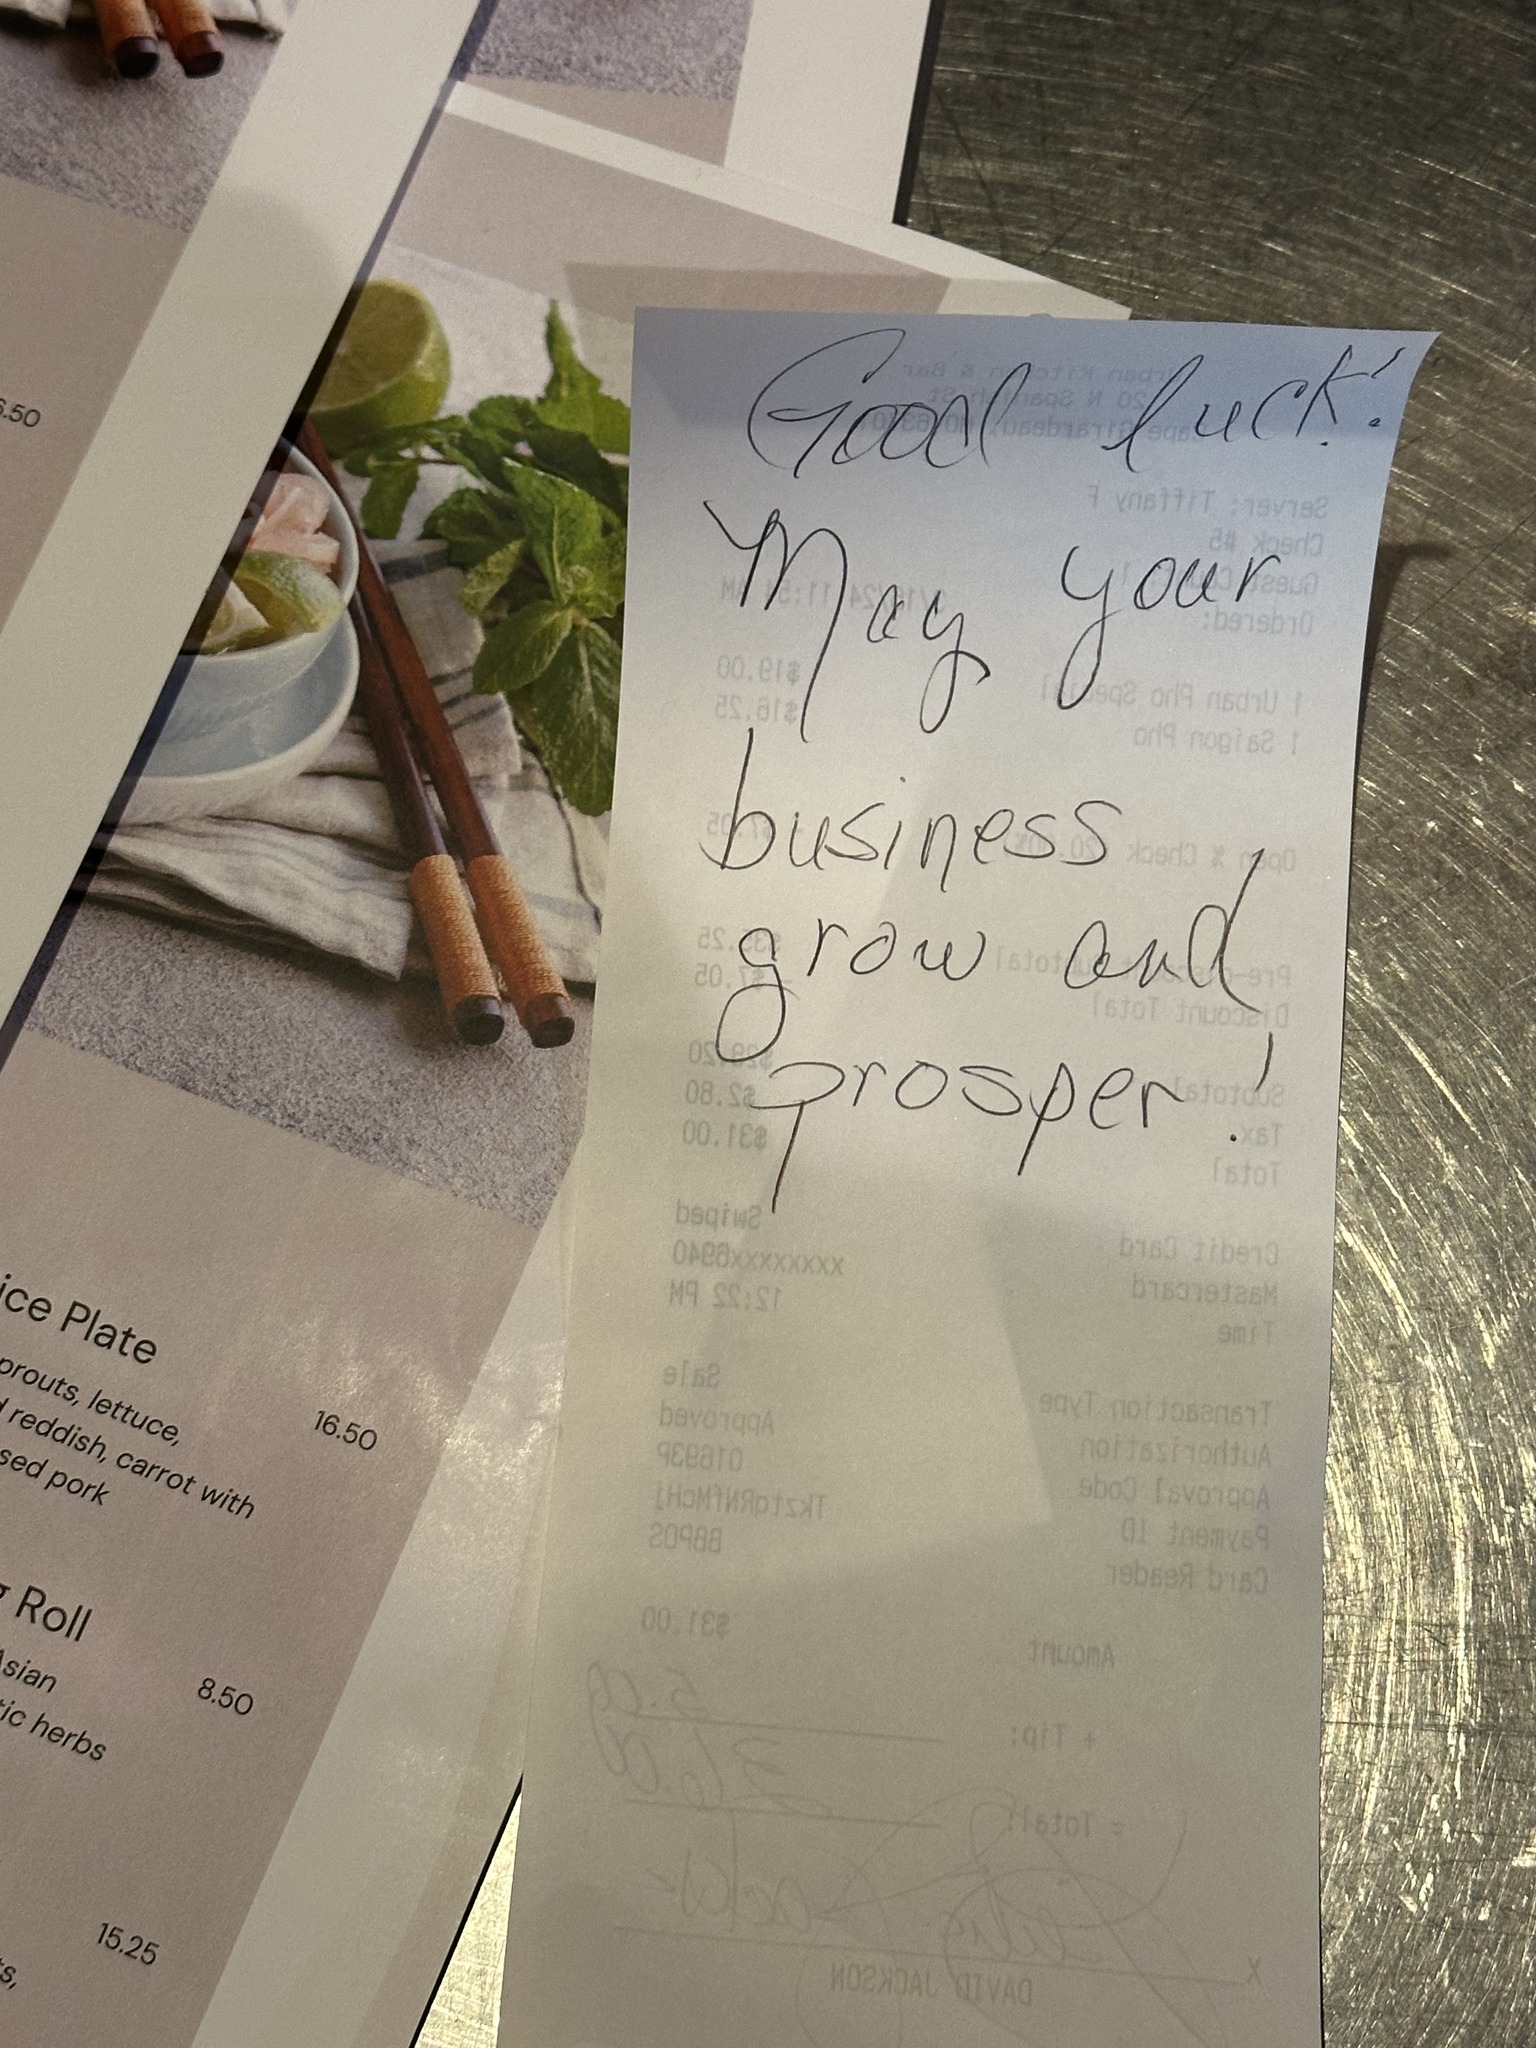 Good luck!
May your
business
grow and
prosper!
Urban Kitchen & Bar
20 N Spanish St
Cape Girardeau, MO 63701
Server: Tiffany F
Check #5
Guest Count: 1
Ordered: 11:54 AM
1 Urban Pho Special $19.00
1 Saigon Pho $16.25
Open % Check -$7.05
Pre-Discount Subtotal $35.25
Discount Total -$7.05
Subtotal $28.20
Tax $2.80
Total $31.00
Credit Card Swiped
Mastercard xxxxxxxx6940
Time 12:22 PM
Transaction Type Sale
Authorization Approved
Approval Code 01693P
Payment ID
Card Reader BBPOS
Amount $31.00
+ Tip: 5.00
= Total: 36.00
X
DAVID JACKSON
6.50
ice Plate
prouts, lettuce,
reddish, carrot with 16.50
sed pork
Roll
Asian 8.50
tic herbs
15.25